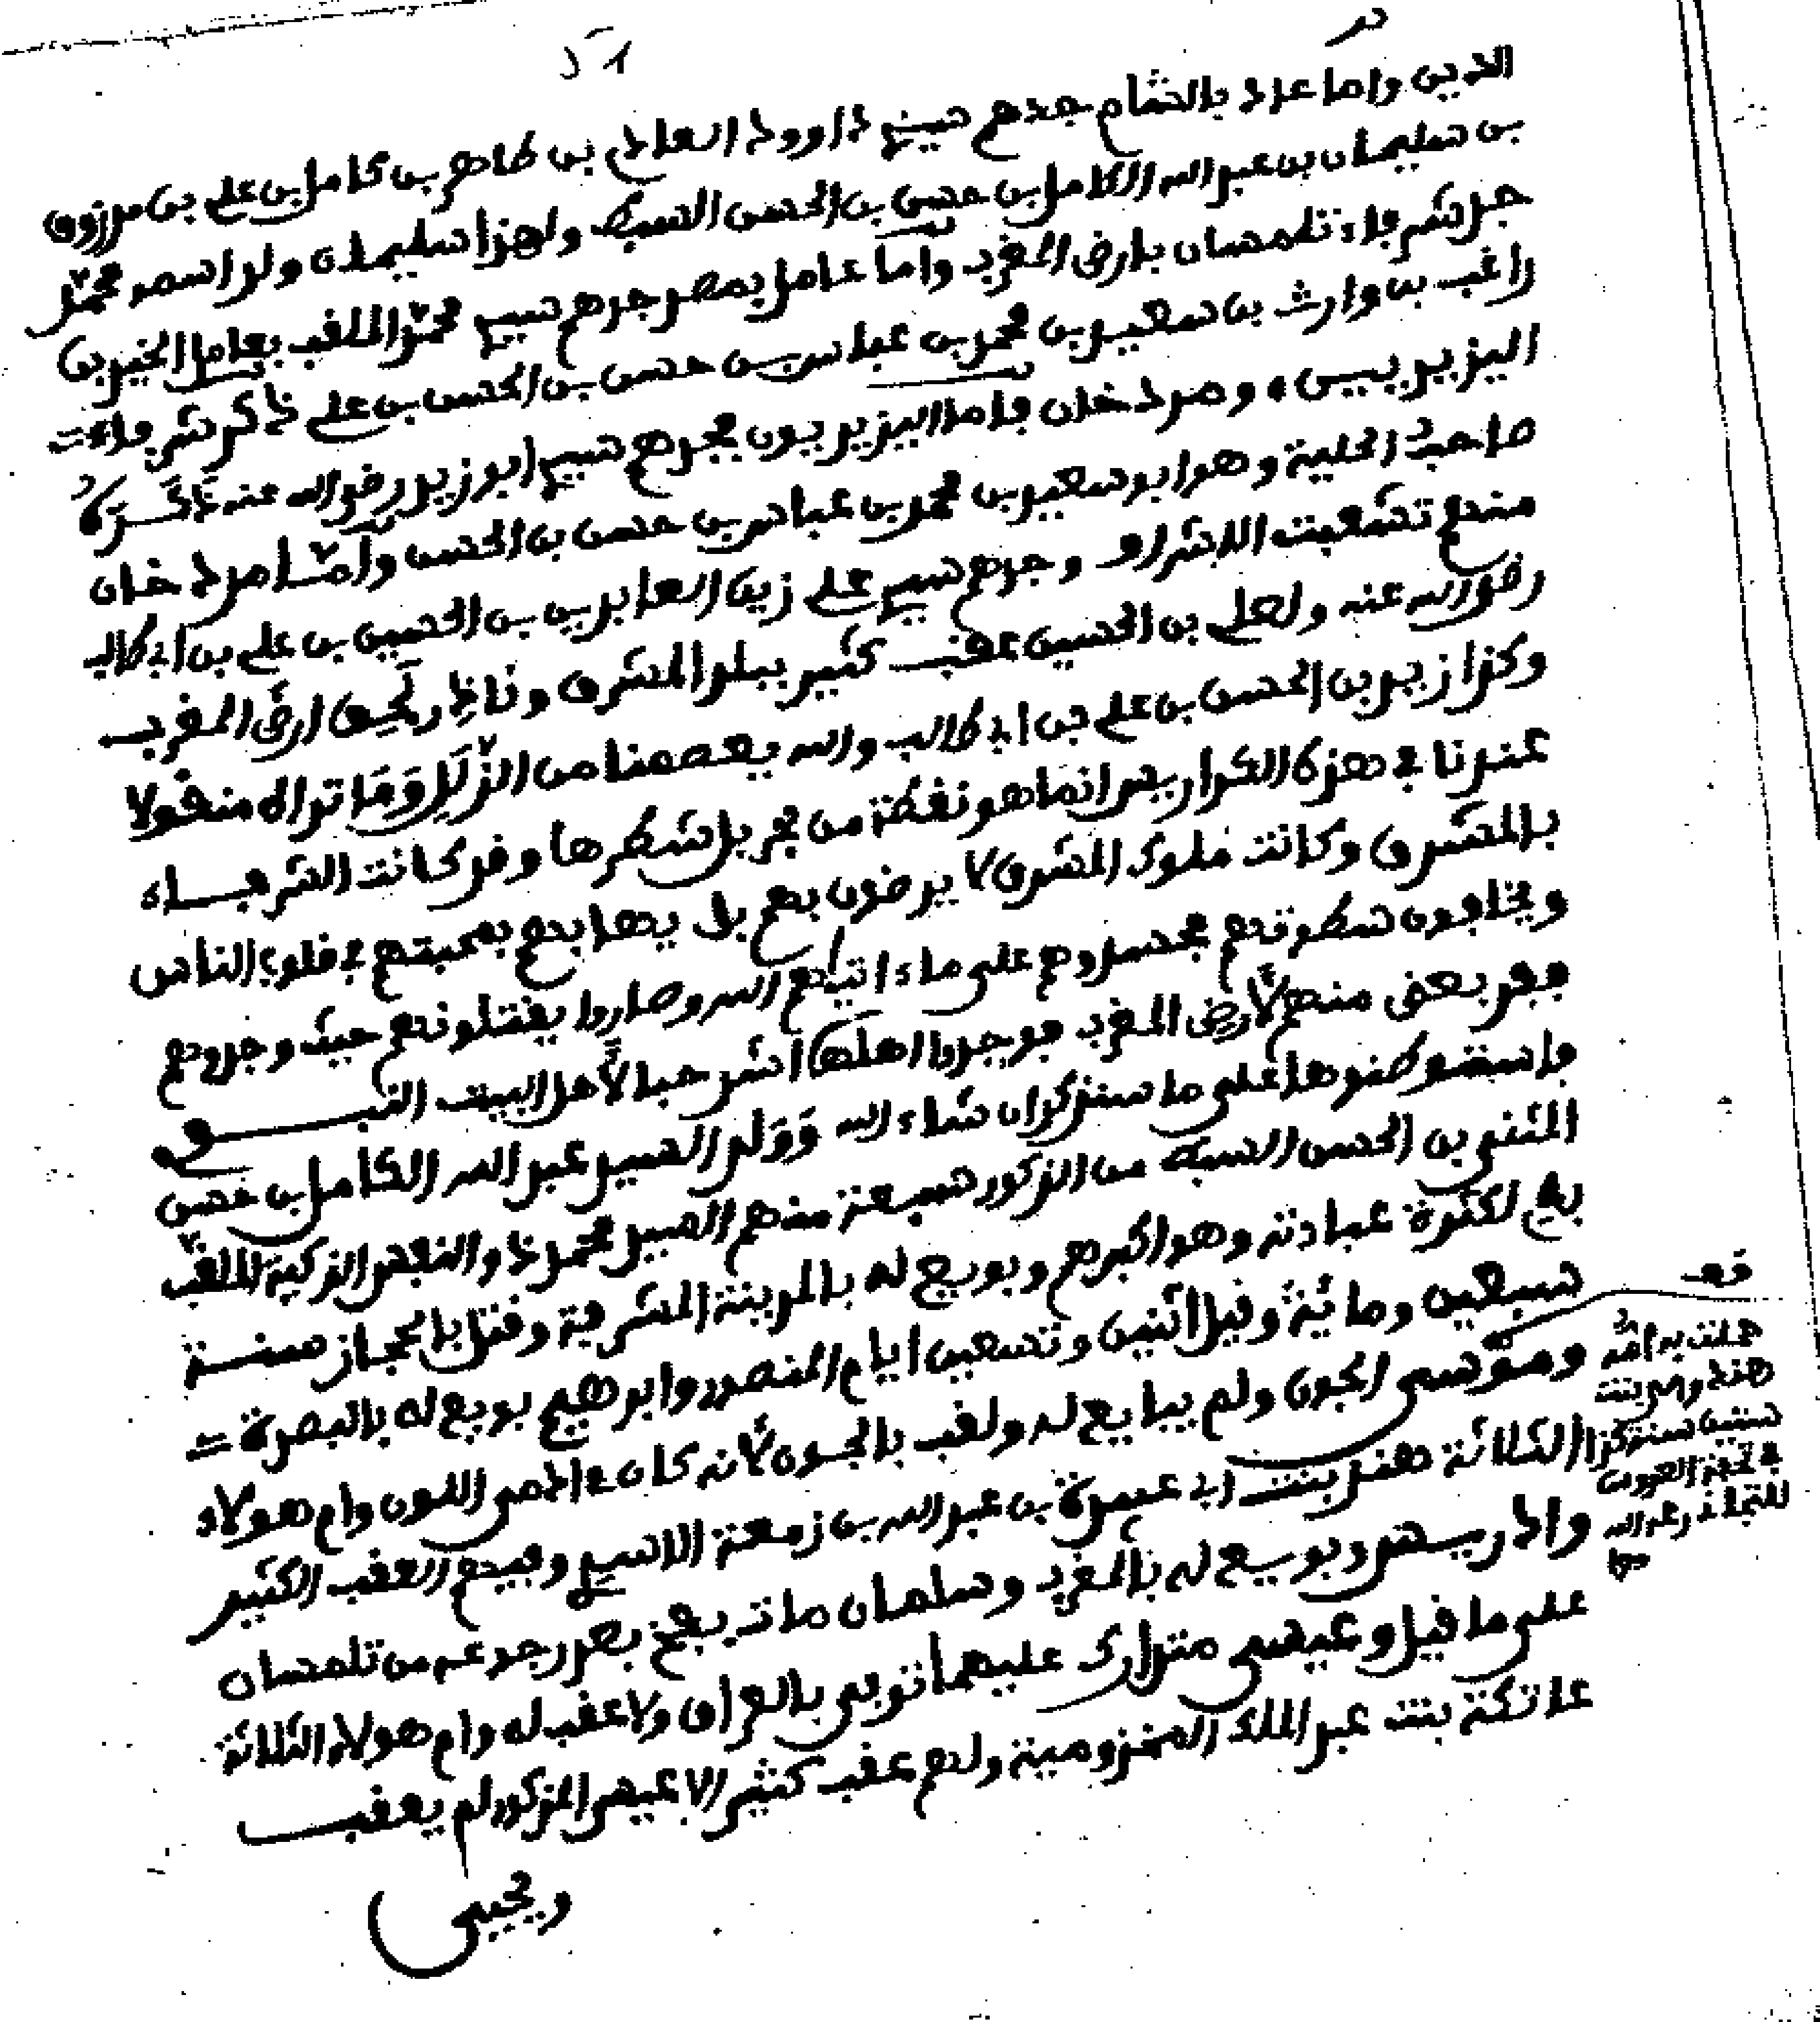 الدين واما عدد بالشام جدهم سيدي داوود العالم بن طاهر بن كامل بن علي بن مرزوق
بن سليمان بن عبد الله الكامل بن حسن بن الحسن السبط ولهذا سليمان ولد اسمه محمد
جد شرفاء تلمسان بارض المغرب واما عامل بمصر جدهم سيدي محمد الملقب بعامل الخير بن
راغب بن وارث بن سعيد بن محمد بن عباس بن حسن بن الحسن بن علي ذاكر شرفاء
اليزيديين ومرد خان فاما اليزيديون فجدهم سيدي ابو زيد رضي الله عنه ذكره
صاحب الحلية وهو ابو سعيد بن محمد بن عباس بن حسن بن الحسن وأما مرد خان
منهم تشعبت الاشراف وجدهم سيدي علي زين العابدين بن الحسين بن علي بن ابي طالب
رضي الله عنه ولعلي بن الحسين عقب كثير ببلد المشرق ونادر لحق ارض المغرب
وكذا زيد بن الحسن بن علي بن ابي طالب والله يعصمنا من الزلل وما تراه منقولا
عندنا في هذه الكراريس انما هو نقطة من بحر بل شطرها وقد كانت الشرفاء
بالمشرق وكانت ملوك المشرق لا يرضون بهم بل يهابهم بمحبتهم في قلوب الناس
ويخافون سطوتهم فحسدوهم على ما ءاتيهم الله وصاروا يقتلونهم حيث وجدوهم
ففر بعض منهم لأرض المغرب فوجدوا اهلها اشد حبا لأهل البيت النبوي
فاستوطنوها على ما سنذكر ان شاء الله وولد السيد عبد الله الكامل بن حسن
المثنى بن الحسن السبط من الذكور سبعة منهم السيد محمد ذو النفس الزكية الملقب
بها لكثرة عبادته وهو اكبرهم وبويع له بالمدينة المشرفة وقتل بالحجاز سنة
سبعين ومائة وقيل اثنين وتسعين ايام المنصور وابرهيم بويع له بالبصرة
وموسى الجون ولم يبايع له ولقب بالجون لأنه كان غالمى اللون وام هولاء
الثلاثة هند بنت ابي عبيدة بن عبد الله بن زمعة الاسدي وفيهم العقب الكثير
وادريس وبويع له بالمغرب وسلمان مات بفخ بعد رجوعه من تلمسان
على ما قيل وعيسى متدارك عليهما توفي بالعراق ولا عقب له وام هولاء الثلاثة
عاتكة بنت عبد الملك المخزومية ولهم عقب كثير الا عيسى المذكور لم يعقب
ويحيى
قف
حملت به امه
هند وهي بنت
ستين سنة كذا
في تحفة
رحمه الله